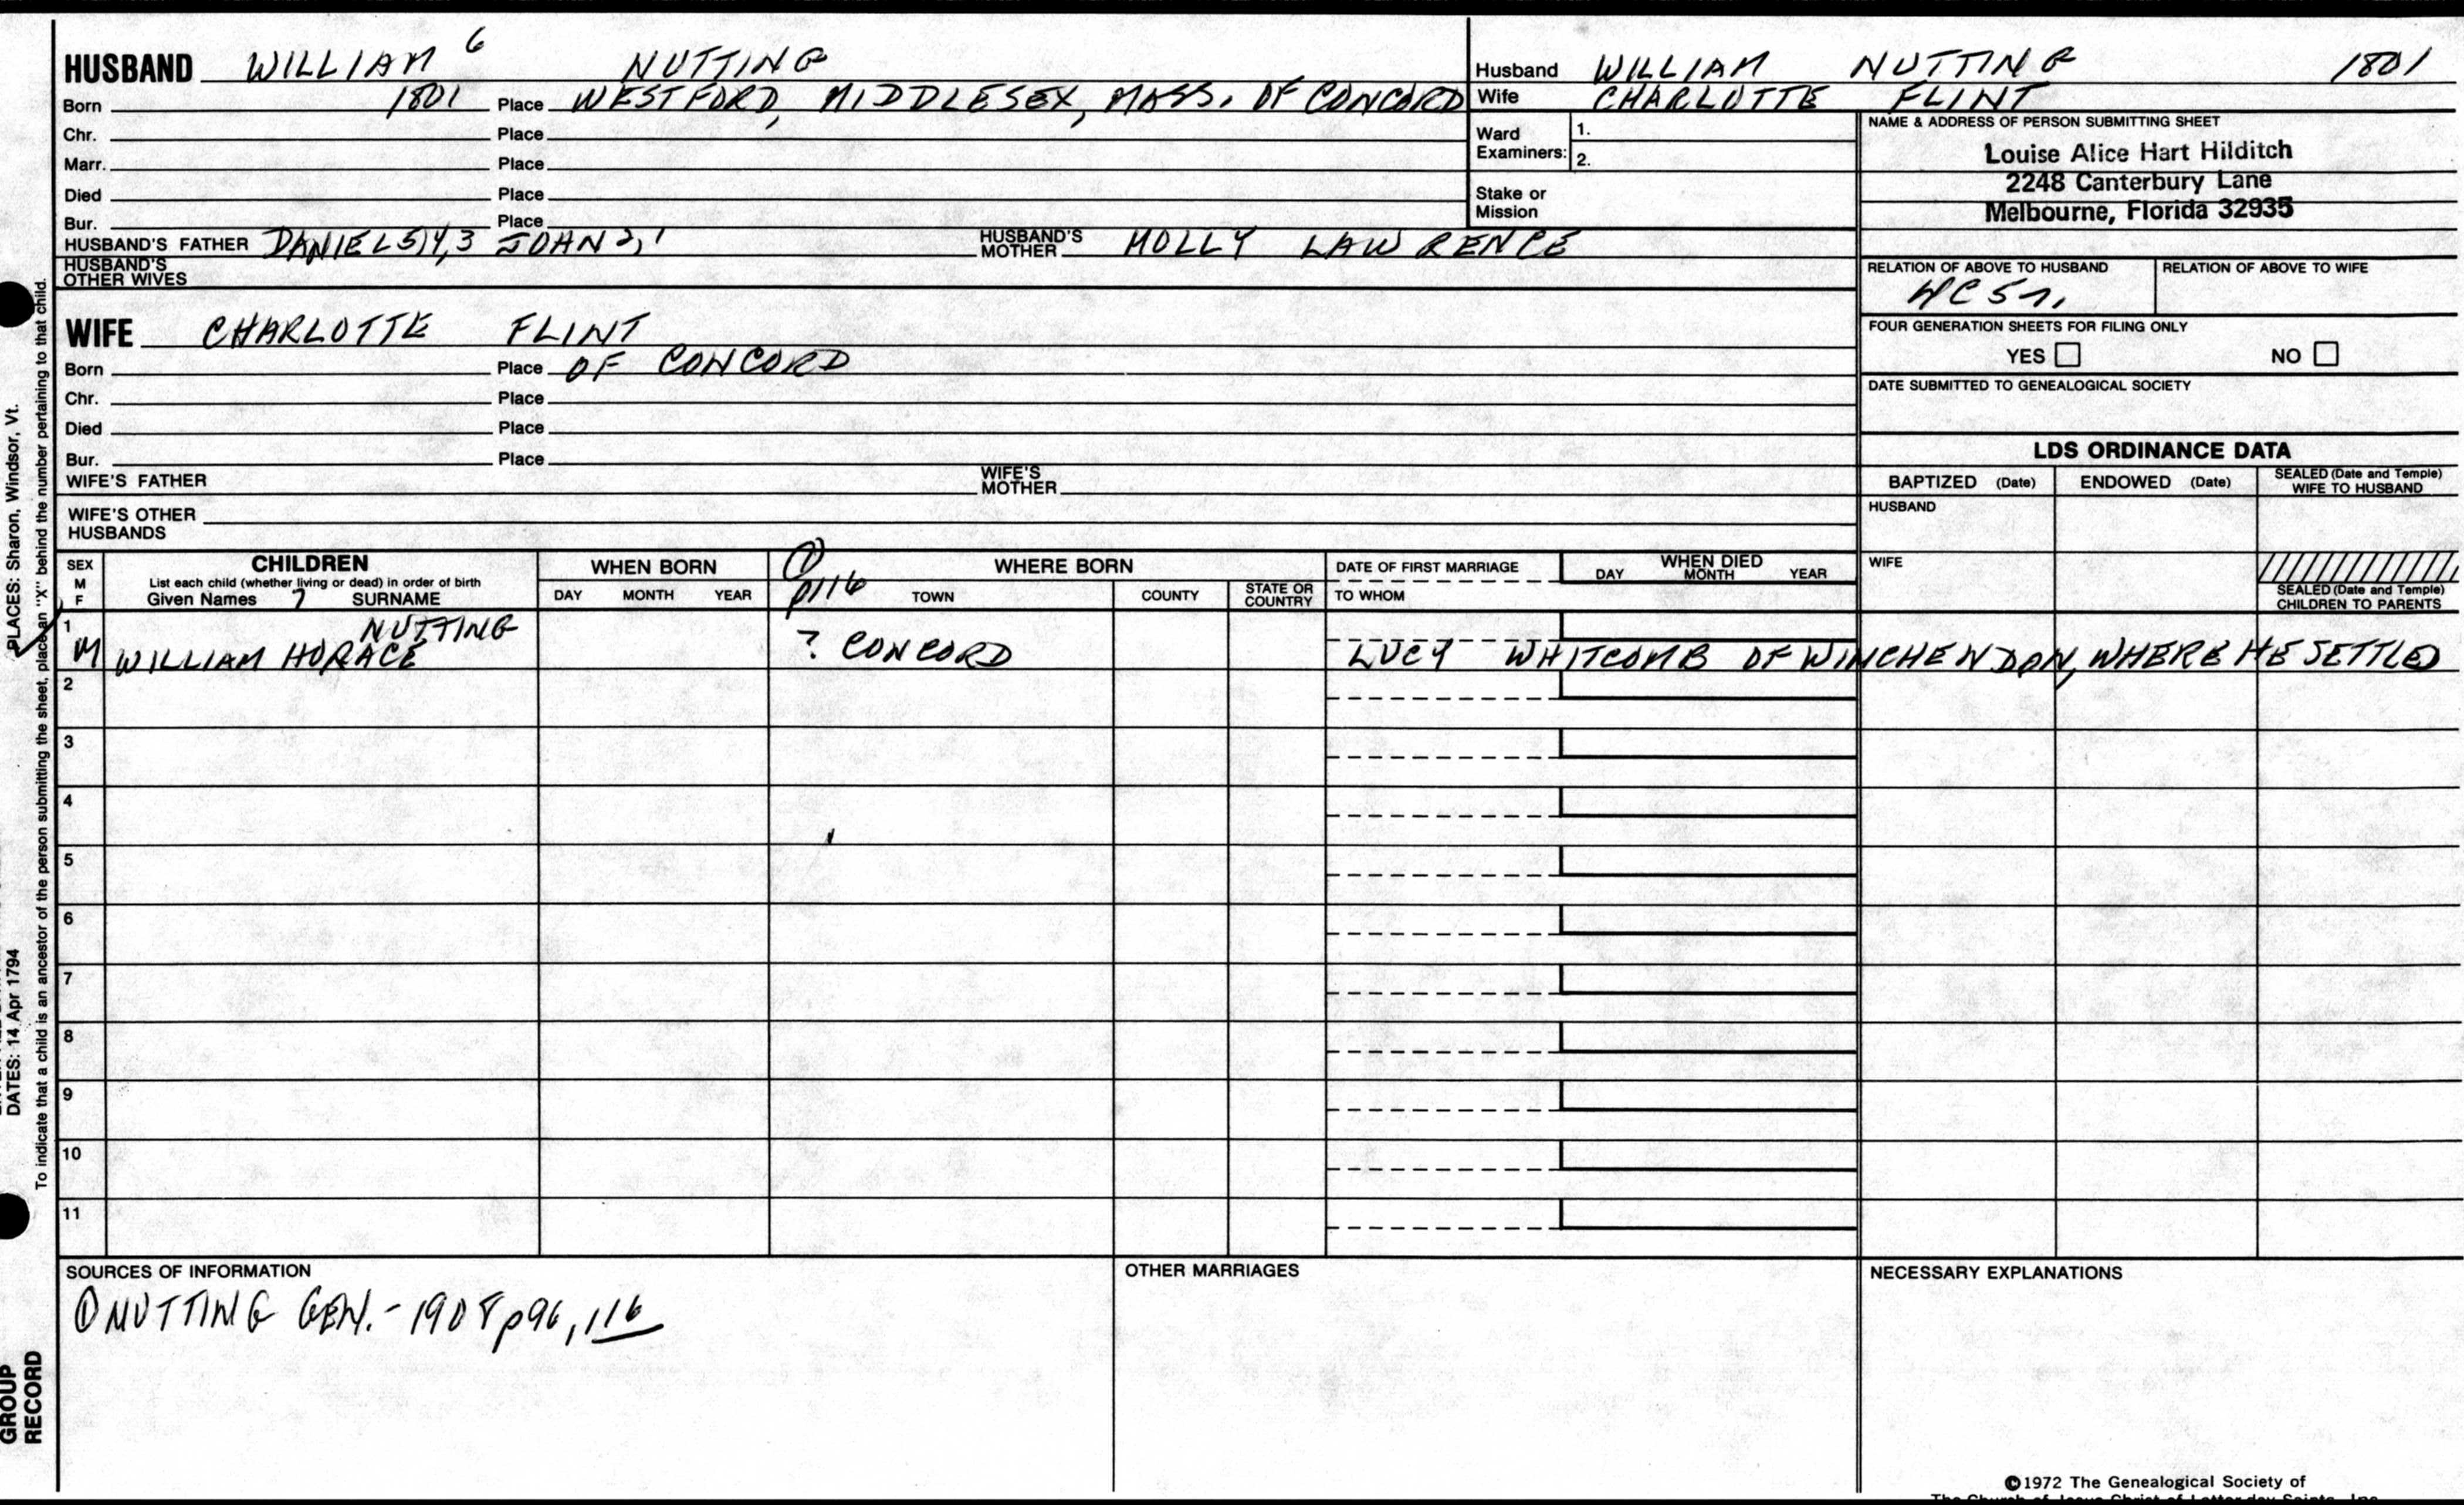 HUSBAND WILLIAM 6 NUTTING
Born 1801 Place WESTFORD, MIDDLESEX, MASS. OF CONCORD
Chr. Place
Marr. Place
Died Place
Bur. Place
HUSBAND'S FATHER DANIEL 5,4,3 JOHN 2,1 HUSBAND'S MOTHER MOLLY LAWRENCE
HUSBAND'S OTHER WIVES
Husband WILLIAM NUTTING 1801
Wife CHARLOTTE FLINT
Ward Examiners: 1.
2.
Stake or Mission
NAME & ADDRESS OF PERSON SUBMITTING SHEET
Louise Alice Hart Hilditch
2248 Canterbury Lane
Melbourne, Florida 32935
RELATION OF ABOVE TO HUSBAND RELATION OF ABOVE TO WIFE
FOUR GENERATION SHEETS FOR FILING ONLY
YES NO
DATE SUBMITTED TO GENEALOGICAL SOCIETY
WIFE CHARLOTTE FLINT
Born Place OF CONCORD
Chr. Place
Died Place
Bur. Place
WIFE'S FATHER WIFE'S MOTHER
WIFE'S OTHER HUSBANDS
LDS ORDINANCE DATA
BAPTIZED (Date) ENDOWED (Date) SEALED (Date and Temple) WIFE TO HUSBAND
HUSBAND
WIFE
SEALED (Date and Temple) CHILDREN TO PARENTS
SEX M F
CHILDREN
List each child (whether living or dead) in order of birth
Given Names 7 SURNAME
WHEN BORN
DAY MONTH YEAR
① p116
WHERE BORN
TOWN COUNTY STATE OR COUNTRY
DATE OF FIRST MARRIAGE
TO WHOM
WHEN DIED
DAY MONTH YEAR
1 NUTTING
M WILLIAM HORACE ? CONCORD LUCY WHITCOMB OF WINCHENDON, WHERE HE SETTLED
2
3
4
5
6
7
8
9
10
11
SOURCES OF INFORMATION
① NUTTING GEN. - 1908 p96, 116
OTHER MARRIAGES
NECESSARY EXPLANATIONS
©1972 The Genealogical Society of
The Church of Jesus Christ of Latter-day Saints, Inc.
PLACES: Sharon, Windsor, Vt.
DATES: 14 Apr 1794
To indicate that a child is an ancestor of the person submitting the sheet, place an "X" behind the number pertaining to that child.
GROUP
RECORD